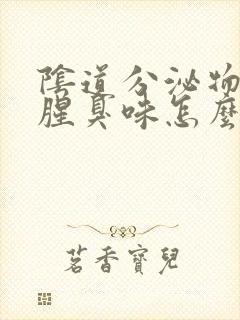 陰道分泌物
腥臭味怎麼
茗香寶兒